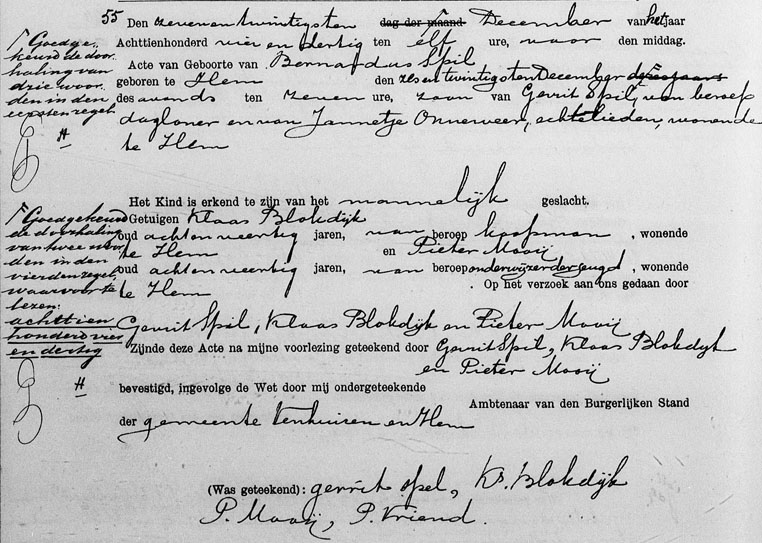 55 Den zevenentwintigsten dag der maand December van het jaar
Achttienhonderd vier en dertig ten elf ure, voor den middag.
Acte van Geboorte van Bernardus Spil
geboren te Hem den zesentwintigsten December dezes jaars
des avonds ten zeven ure, zoon van Gerrit Spil, van beroep
dagloner en van Jannetje Onneweer, echtelieden, wonende
te Hem
Goedge-
keurd de door-
haling van
drie woor-
den in den
eersten regel
H
Het Kind is erkend te zijn van het mannelijk geslacht.
Getuigen Klaas Blokdijk
oud acht en veertig jaren, van beroep koopman, wonende
te Hem en Pieter Mooij
oud acht en veertig jaren, van beroep onderwijzer der jeugd, wonende
te Hem . Op het verzoek aan ons gedaan door
Gerrit Spil, Klaas Blokdijk en Pieter Mooij
Zijnde deze Acte na mijne voorlezing geteekend door Gerrit Spil, Klaas Blokdijk
en Pieter Mooij
Goedgekeurd
de doorhaling
van twee woor-
den in den
vierden regel,
waarvoor te
lezen:
achttien
honderd vier
en dertig
H
bevestigd, ingevolge de Wet door mij ondergeteekende
Ambtenaar van den Burgerlijken Stand
der gemeente Venhuizen en Hem
(Was geteekend): gerrit spel, Ks. Blokdijk
P. Mooij, P. Vriend.